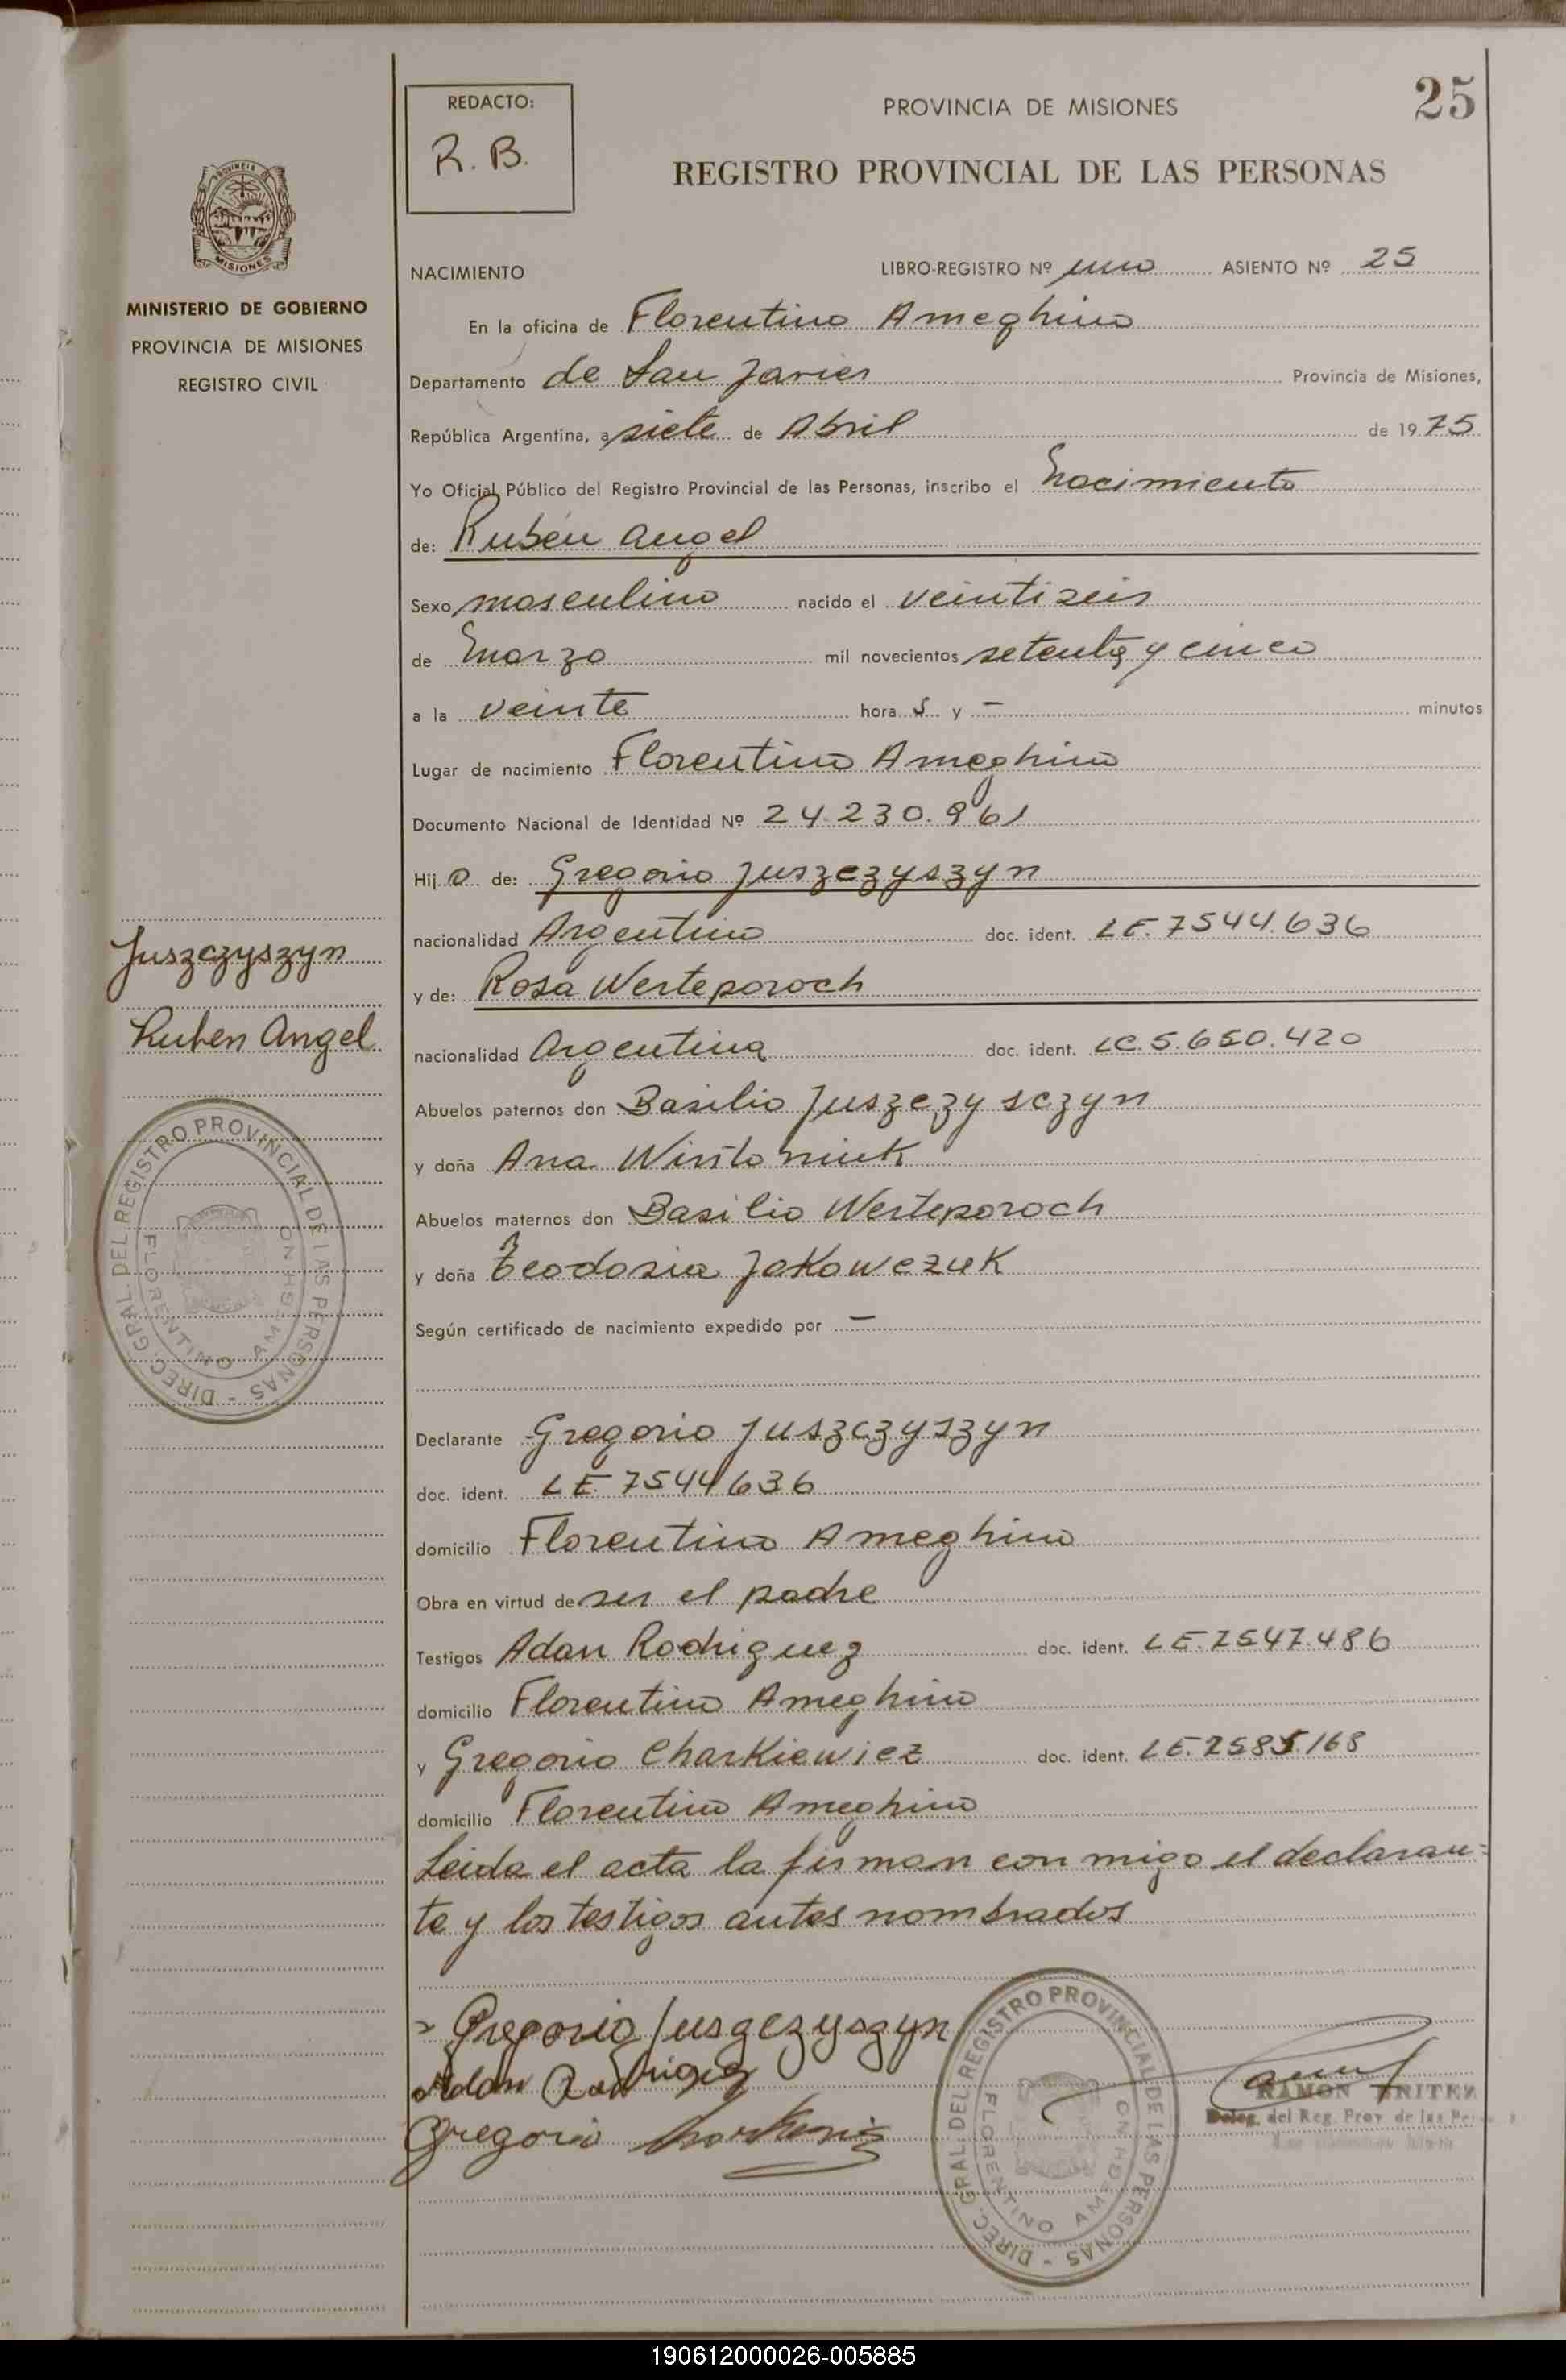 25
REDACTO:
R. B.
PROVINCIA DE MISIONES
REGISTRO PROVINCIAL DE LAS PERSONAS
MISIONES
MINISTERIO DE GOBIERNO
PROVINCIA DE MISIONES
REGISTRO CIVIL
NACIMIENTO LIBRO-REGISTRO Nº uno ASIENTO Nº 25
En la oficina de Florentino Ameghino
Departamento de San Javier Provincia de Misiones,
República Argentina, a siete de Abril de 1975
Yo Oficial Público del Registro Provincial de las Personas, inscribo el Nacimiento
de: Rubén Angel
Sexo masculino nacido el veintiseis
de Marzo mil novecientos setenta y cinco
a la veinte hora s y - minutos
Lugar de nacimiento Florentino Ameghino
Documento Nacional de Identidad Nº 24.230.961
Hijo de: Gregorio Juszczyszyn
nacionalidad Argentino doc. ident. LE. 7544.636
y de: Rosa Werteporoch
nacionalidad Argentina doc. ident. LC. 5.650.420
Abuelos paternos don Basilio Juszczysczyn
y doña Ana Wintoniuk
Abuelos maternos don Basilio Werteporoch
y doña Teodosia Jakowczuk
Según certificado de nacimiento expedido por -
Declarante Gregorio Juszczyszyn
doc. ident. LE. 7544636
domicilio Florentino Ameghino
Obra en virtud de ser el padre
Testigos Adan Rodriguez doc. ident. LE. 7547.486
domicilio Florentino Ameghino
y Gregorio Charkiewicz doc. ident. LE. 7585.168
domicilio Florentino Ameghino
Leida el acta la firman con migo el declaran=
te y los testigos antes nombrados
Juszczyszyn
Ruben Angel
DIREC. GRAL. DEL REGISTRO PROVINCIAL DE LAS PERSONAS - FLORENTINO AMEGHINO
Gregorio Juszczyszyn
Adan Rodriguez
Gregorio
DIREC. GRAL. DEL REGISTRO PROVINCIAL DE LAS PERSONAS - FLORENTINO AMEGHINO
RAMON BRITEZ
Deleg. del Reg. Prov. de las
190612000026-005885